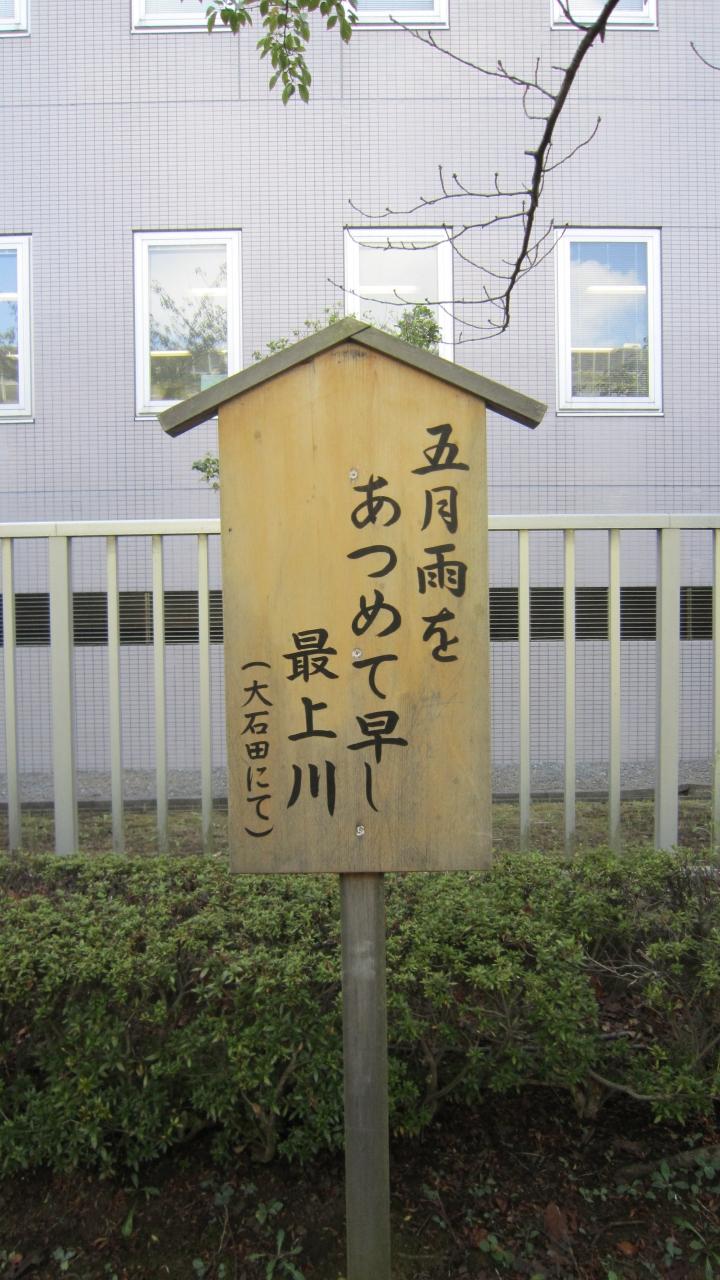 五月雨を
あつめて早し
最上川
（大石田にて）